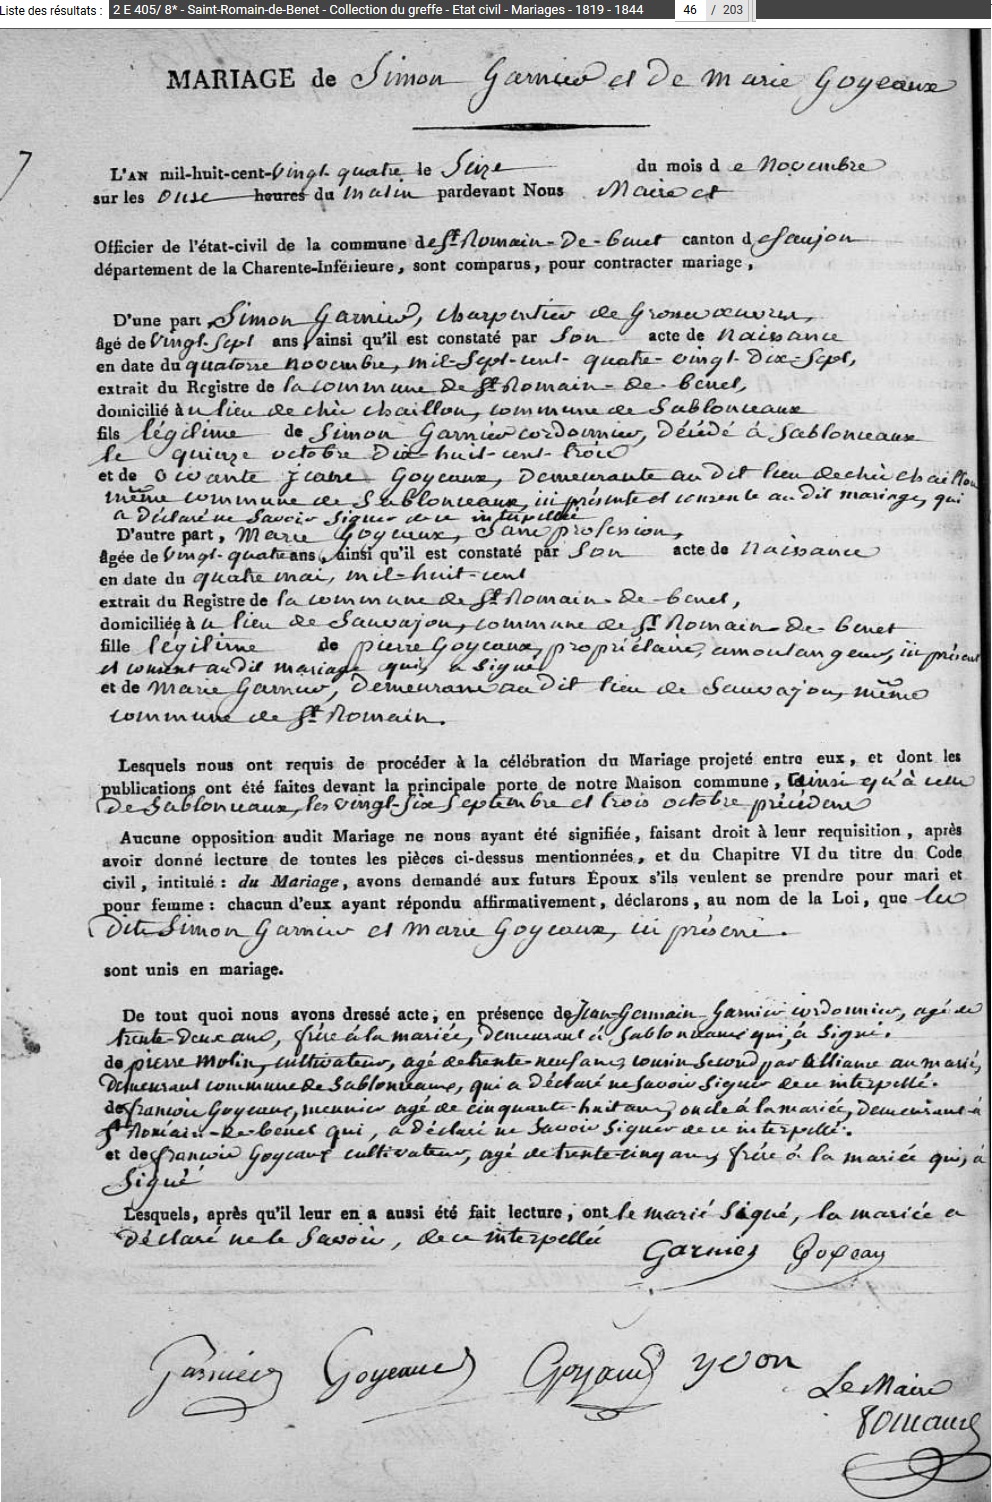 Liste des résultats : 2 E 405/ 8* - Saint-Romain-de-Benet - Collection du greffe - Etat civil - Mariages - 1819 - 1844 46 / 203
MARIAGE de Simon Garnier et de Marie Goyeaux
7
L'AN mil-huit-cent-vingt quatre le Seize du mois de Novembre
sur les onse heures du matin pardevant Nous Maire et
Officier de l'état-civil de la commune de St Romain-De-benet canton de Saujon
département de la Charente-Inférieure, sont comparus, pour contracter mariage,
D'une part, Simon Garnier, charpentier de
âgé de vingt-sept ans, ainsi qu'il est constaté par Son acte de Naissance
en date du quatorse novembre, mil-Sept-cent-quatre-vingt-Dix-Sept,
extrait du Registre de la commune de St Romain-de-benet,
domicilié au lieu de chez chaillou, commune de Sablonceaux
fils légitime de Simon Garnier cordonnier, Décédé à Sablonceaux
le quinze octobre Dix-huit-cent-trois
et de vivante jeane Goyeaux, Demeurante au Dit lieu de chez chaillou
même commune de Sablonceaux, ici présente et consente au dit mariage, qui
a déclaré ne Savoir Signer de ce interpellée
D'autre part, Marie Goyeaux, Sans profession,
âgée de vingt-quatre ans, ainsi qu'il est constaté par Son acte de Naissance
en date du quatre mai, mil-huit-cent
extrait du Registre de la commune de St Romain-de-benet,
domiciliée au lieu de Sauvajou, commune de St Romain-de-benet
fille légitime de pierre Goyeaux, propriétaire, ici présent
et consent au dit mariage qui, a Signé
et de Marie Garnier, Demeurans au Dit lieu de Sauvajou, même
commune de St Romain.
Lesquels nous ont requis de procéder à la célébration du Mariage projeté entre eux, et dont les
publications ont été faites devant la principale porte de notre Maison commune, ainsi qu'à celle
de Sablonceaux, les vingt-six Septembre et trois octobre précédent
Aucune opposition audit Mariage ne nous ayant été signifiée, faisant droit à leur requisition, après
avoir donné lecture de toutes les pièces ci-dessus mentionnées, et du Chapitre VI du titre du Code
civil, intitulé : du Mariage, avons demandé aux futurs Époux s'ils veulent se prendre pour mari et
pour femme : chacun d'eux ayant répondu affirmativement, déclarons, au nom de la Loi, que les
dits Simon Garnier et Marie Goyeaux, ici présens.
sont unis en mariage.
De tout quoi nous avons dressé acte, en présence de Jean-Germain Garnier cordonnier, agé de
trente-Deux ans, frère à la mariée, demeurant à Sablonceaux qui, à Signé.
de pierre Molin, cultivateur, agé de trente-neuf ans, cousin Second par alliance au marié,
Demeurant commune de Sablonceaux, qui a Déclaré ne Savoir Signer de ce interpellé.
de francois Goyeaux, meunier agé de cinquante-huit ans, oncle à la mariée, Demeurant à
St Romain-de-benet qui, a Déclaré ne Savoir Signer de ce interpellé.
et de francois Goyeaux cultivateur, agé de trente-cinq ans, frère à la mariée qui, à
Signé
Lesquels, après qu'il leur en a aussi été fait lecture, ont le marié Signé, la mariée a
Déclaré ne le Savoir, de ce interpellée
Garnier Goyeau
Garnier Goyeaud Goyaud yvon Le Maire